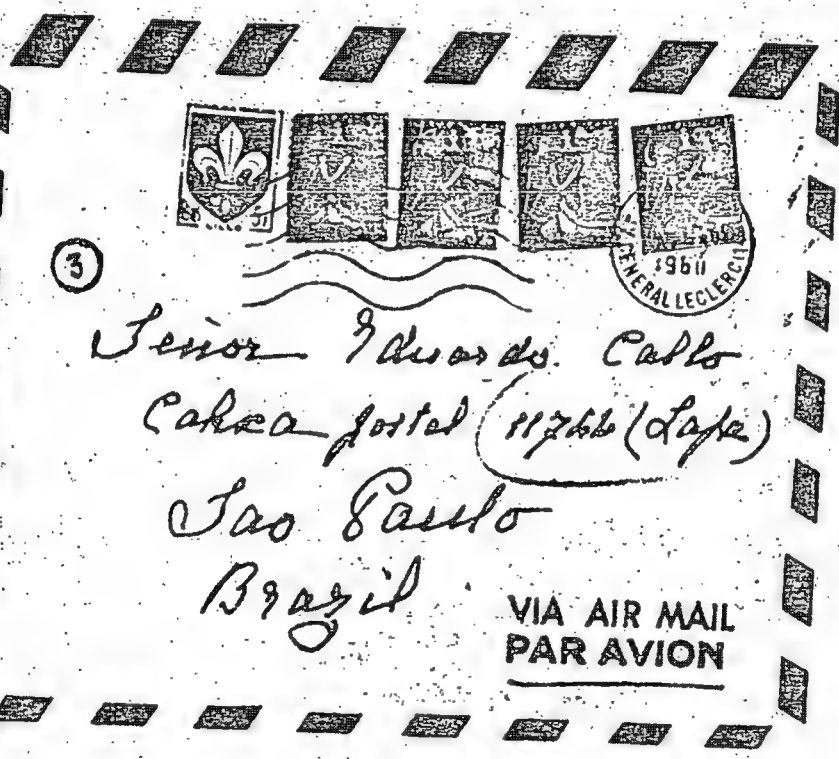 3
1960
GENERAL LECLERC
Señor Eduardo Callo
postal 11766 (Lapa)
Sao Paulo
Brazil
VIA AIR MAIL
PAR AVION